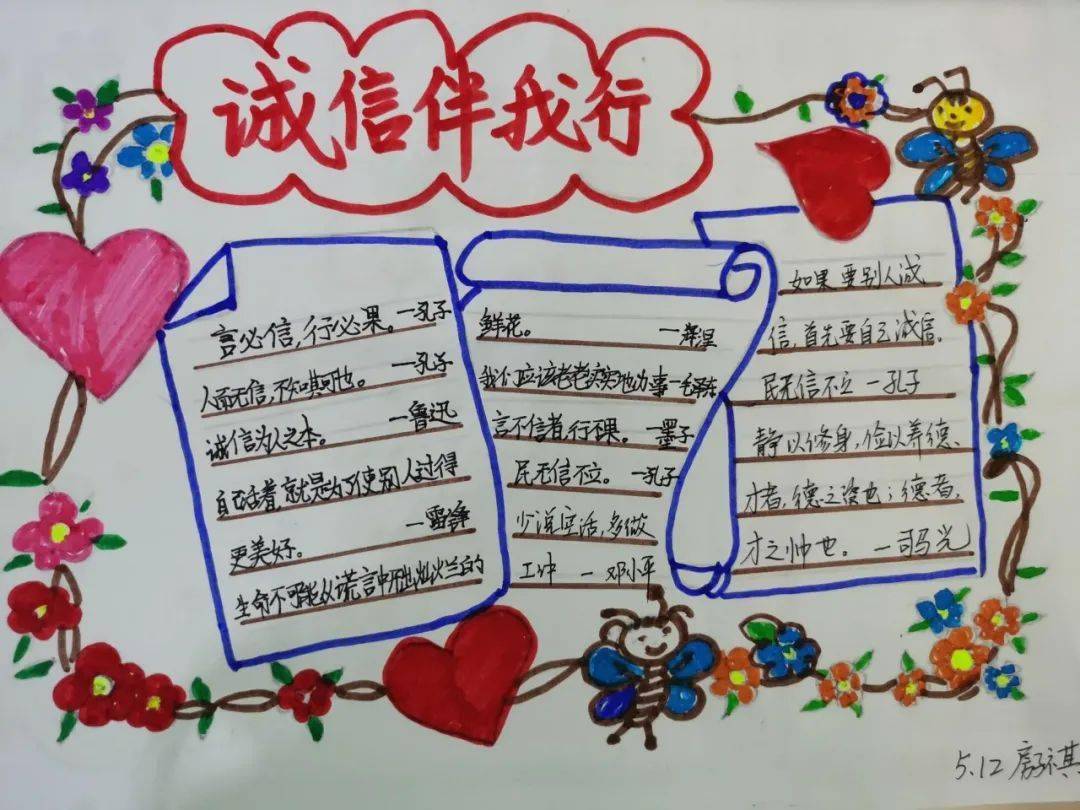 诚信伴我行
言必信,行必果。—孔子
人而无信,不知其可也。—孔子
诚信为人之本。—鲁迅
自己活着,就是为了使别人过得
更美好。—雷锋
生命不可能从谎言中开出灿烂的
鲜花。—海涅
我们应该老老实实地办事—毛泽东
言不信者,行不果。—墨子
民无信不立。—孔子
少说空话,多做
工作 — 邓小平
如果要别人诚
信,首先要自己诚信。
民无信不立 —孔子
静以修身,俭以养德、
才者,德之资也;德者,
才之帅也。—司马光
5.12 房祺